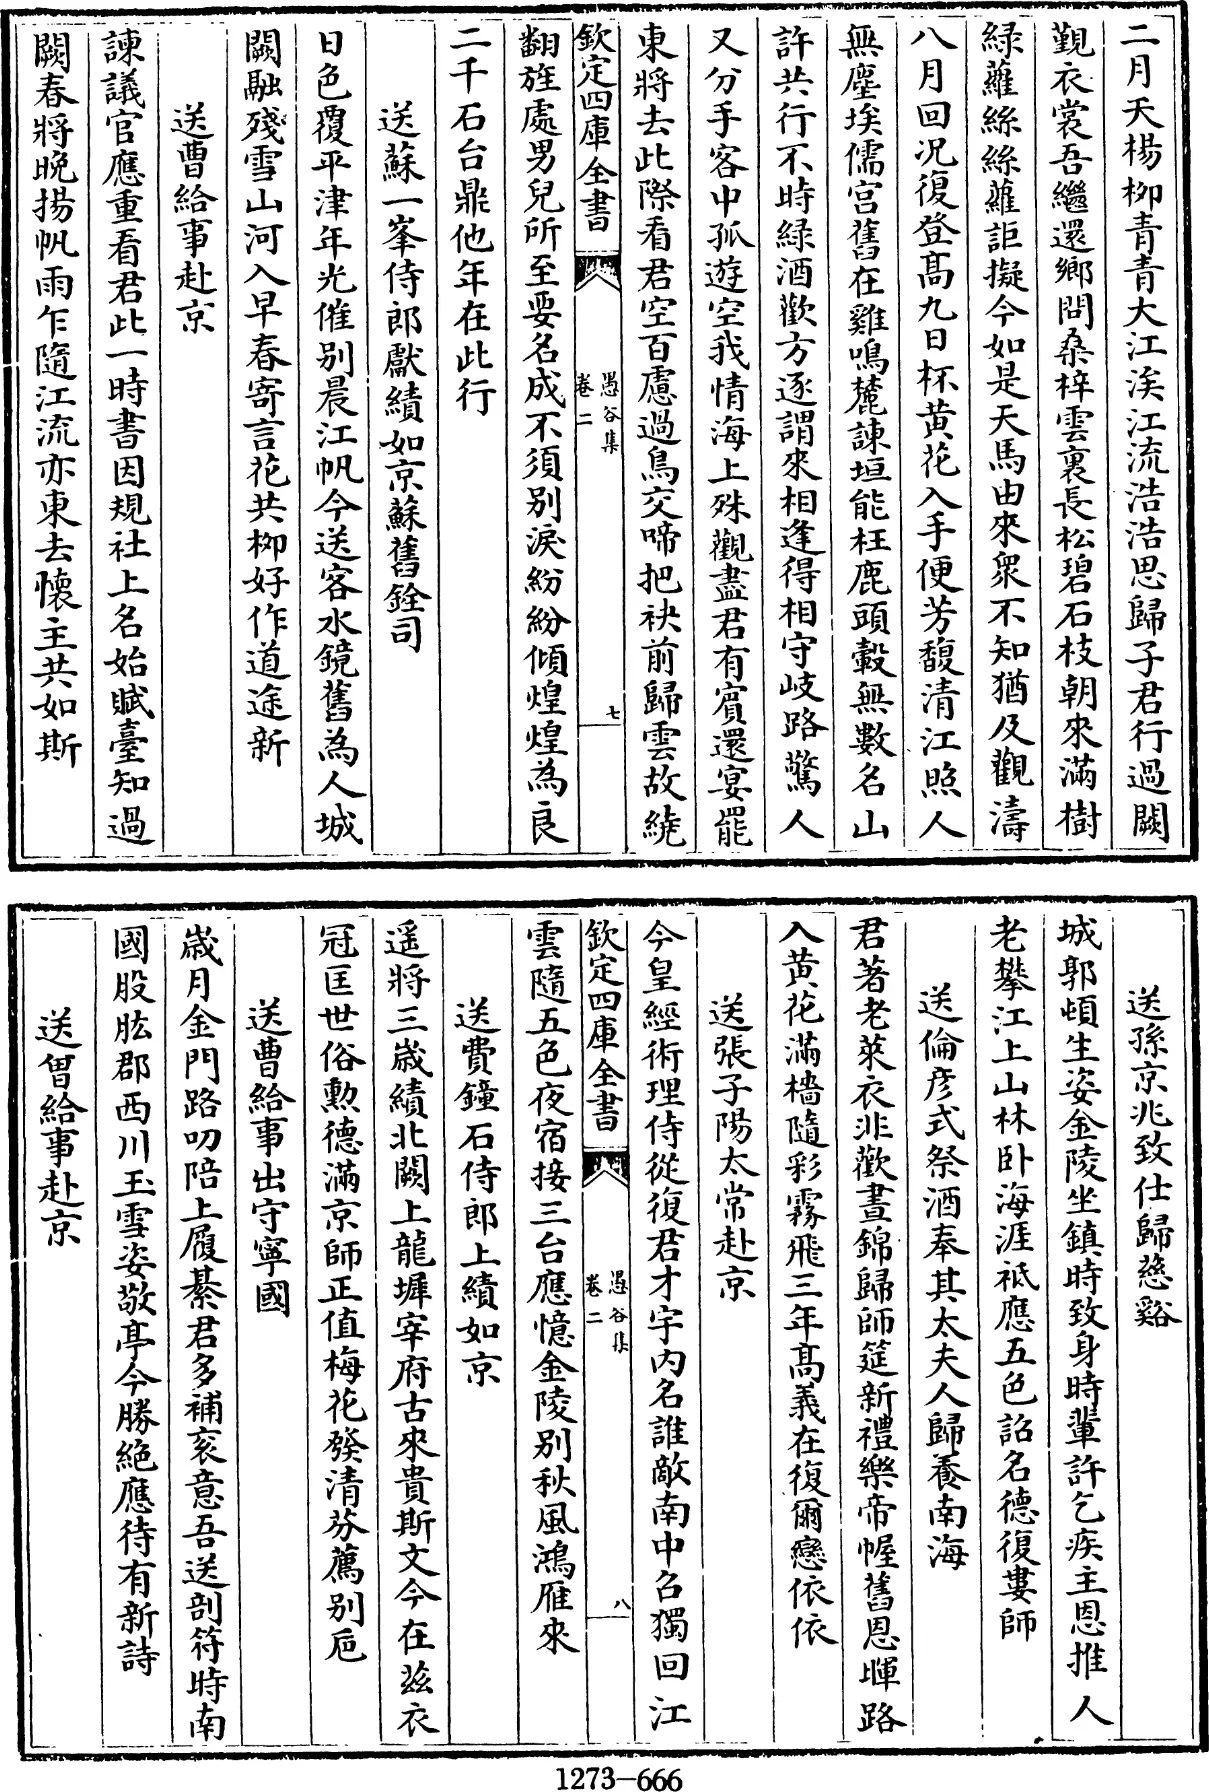 二月天楊柳青青大江涘江流浩浩思歸子君行過闕
覲衣裳吾繼還鄉問桑梓雲裏長松碧石枝朝來滿樹
綠蘿絲絲蘿詎擬今如是天馬由來衆不知猶及觀濤
八月回况復登高九日杯黄花入手便芳馥清江照人
無塵埃儒宫舊在雞鳴麓諫垣能枉鹿頭轂無數名山
許共行不時綠酒歡方逐謂來相逢得相守岐路驚人
又分手客中孤遊空我情海上殊觀盡君有賓還宴罷
東將去此際看君空百慮過鳥交啼把袂前歸雲故繞
欽定四庫全書
愚谷集
卷二
七
翻旌處男兒所至要名成不須别淚紛紛傾煌煌為良
二千石台鼎他年在此行
送蘇一峯侍郎獻績如京蘇舊銓司
日色覆平津年光催别晨江帆今送客水鏡舊為人城
闕融殘雪山河入早春寄言花共柳好作道途新
送曹給事赴京
諫議官應重看君此一時書因規社上名始賦臺知過
闕春將晚揚帆雨乍隨江流亦東去懷主共如斯
送孫京兆致仕歸慈谿
城郭頓生姿金陵坐鎮時致身時輩許乞疾主恩推人
老攀江上山林卧海涯祗應五色詔名德復婁師
送倫彦式祭酒奉其太夫人歸養南海
君著老萊衣非歡晝錦歸師筵新禮樂帝幄舊恩暉路
入黄花滿檣隨彩霧飛三年高義在復爾戀依依
送張子陽太常赴京
今皇經術理侍從復君才宇内名誰敵南中召獨回江
欽定四庫全書
愚谷集
卷二
八
雲隨五色夜宿接三台應憶金陵别秋風鴻雁來
送費鐘石侍郎上績如京
遥將三歲績北闕上龍墀宰府古來貴斯文今在兹衣
冠匡世俗勲德滿京師正值梅花發清芬薦别巵
送曹給事出守寧國
歲月金門路叨陪上履綦君多補衮意吾送剖符時南
國股肱郡西川玉雪姿敬亭今勝絶應待有新詩
送曾給事赴京
1273—666